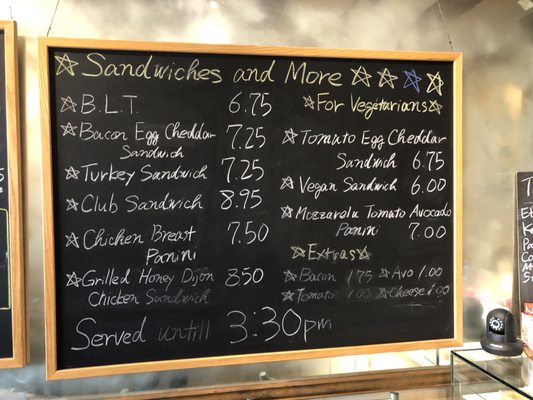 Sandwiches and More
B.L.T. 6.75
Bacon Egg Cheddar 7.25
Sandwich
Turkey Sandwich 7.25
Club Sandwich 8.95
Chicken Breast 7.50
Panini
Grilled Honey Dijon 8.50
Chicken Sandwich
For Vegetarians
Tomato Egg Cheddar
Sandwich 6.75
Vegan Sandwich 6.00
Mozzarela Tomato Avocado
Panini 7.00
Extras
Bacon 1.75 Avo 1.00
Tomato 1.00 Cheese 1.00
Served untill 3:30pm